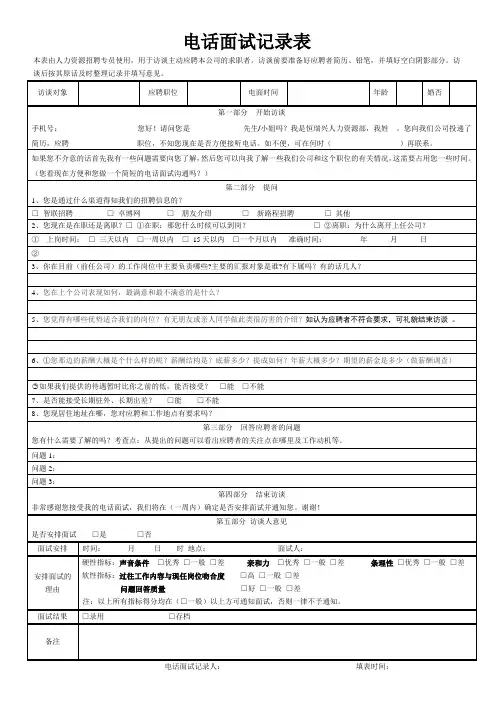 电话面试记录表
本表由人力资源招聘专员使用，用于访谈主动应聘本公司的求职者。访谈前要准备好应聘者简历、铅笔，并填好空白阴影部分。访
谈后按其原话及时整理记录并填写意见。
访谈对象 应聘职位 电面时间 年龄 婚否
第一部分 开始访谈
手机号： 您好！请问您是 先生/小姐吗？我是恒瑞兴人力资源部，我姓 。您向我们公司投递了
简历，应聘 职位，不知您现在是否方便接听电话。如不便，可在何时（ ）再联系。
如果您不介意的话首先我有一些问题需要向您了解，然后您可以向我了解一些我们公司和这个职位的有关情况，这需要占用您一些时间。
（您看现在方便和您做一个简短的电话面试沟通吗？）
第二部分 提问
1、您是通过什么渠道得知我们的招聘信息的？
□ 智联招聘 □ 卓博网 □ 朋友介绍 □ 新路程招聘 □ 其他
2、您现在是在职还是离职？□ ①在职：那您什么时候可以到岗？ □ ②离职：为什么离开上任公司？
① 上岗时间： □ 三天以内 □一周以内 □ 15 天以内 □一个月以内 准确时间： 年 月 日
②
3、你在目前（前任公司）的工作岗位中主要负责哪些?主要的汇报对象是谁?有下属吗？有的话几人？
4、您在上个公司表现如何，最满意和最不满意的是什么？
5、您觉得有哪些优势适合我们的岗位？有无朋友或亲人同学做此类很厉害的介绍？如认为应聘者不符合要求，可礼貌结束访谈 。
6、①您那边的薪酬大概是个什么样的呢？薪酬结构是？底薪多少？提成如何？年薪大概多少？期望的薪金是多少（做薪酬调查）
②如果我们提供的待遇暂时比你之前的低，能否接受？ □能 □不能
7、是否能接受长期驻外、长期出差？ □能 □不能
8、您现居住地址在哪，您对应聘和工作地点有要求吗？
第三部分 回答应聘者的问题
您有什么需要了解的吗？考查点：从提出的问题可以看出应聘者的关注点在哪里及工作动机等。
问题 1：
问题 2：
问题 3：
第四部分 结束访谈
非常感谢您接受我的电话面试，我们将在（一周内）确定是否安排面试并通知您。谢谢！
第五部分 访谈人意见
是否安排面试 □是 □否
面试安排 时间： 月 日 时 地点： 面试人：
安排面试的
理由
硬性指标：声音条件 □优秀 □一般 □差 亲和力 □优秀 □一般 □差 条理性 □优秀 □一般 □差
软性指标：过往工作内容与现任岗位吻合度 □高 □一般 □差
问题回答质量 □好 □一般 □差
注：以上所有指标得分均在（□一般）以上方可通知面试，否则一律不予通知。
面试结果 □录用 □存档
备注
电话面试记录人： 填表时间：